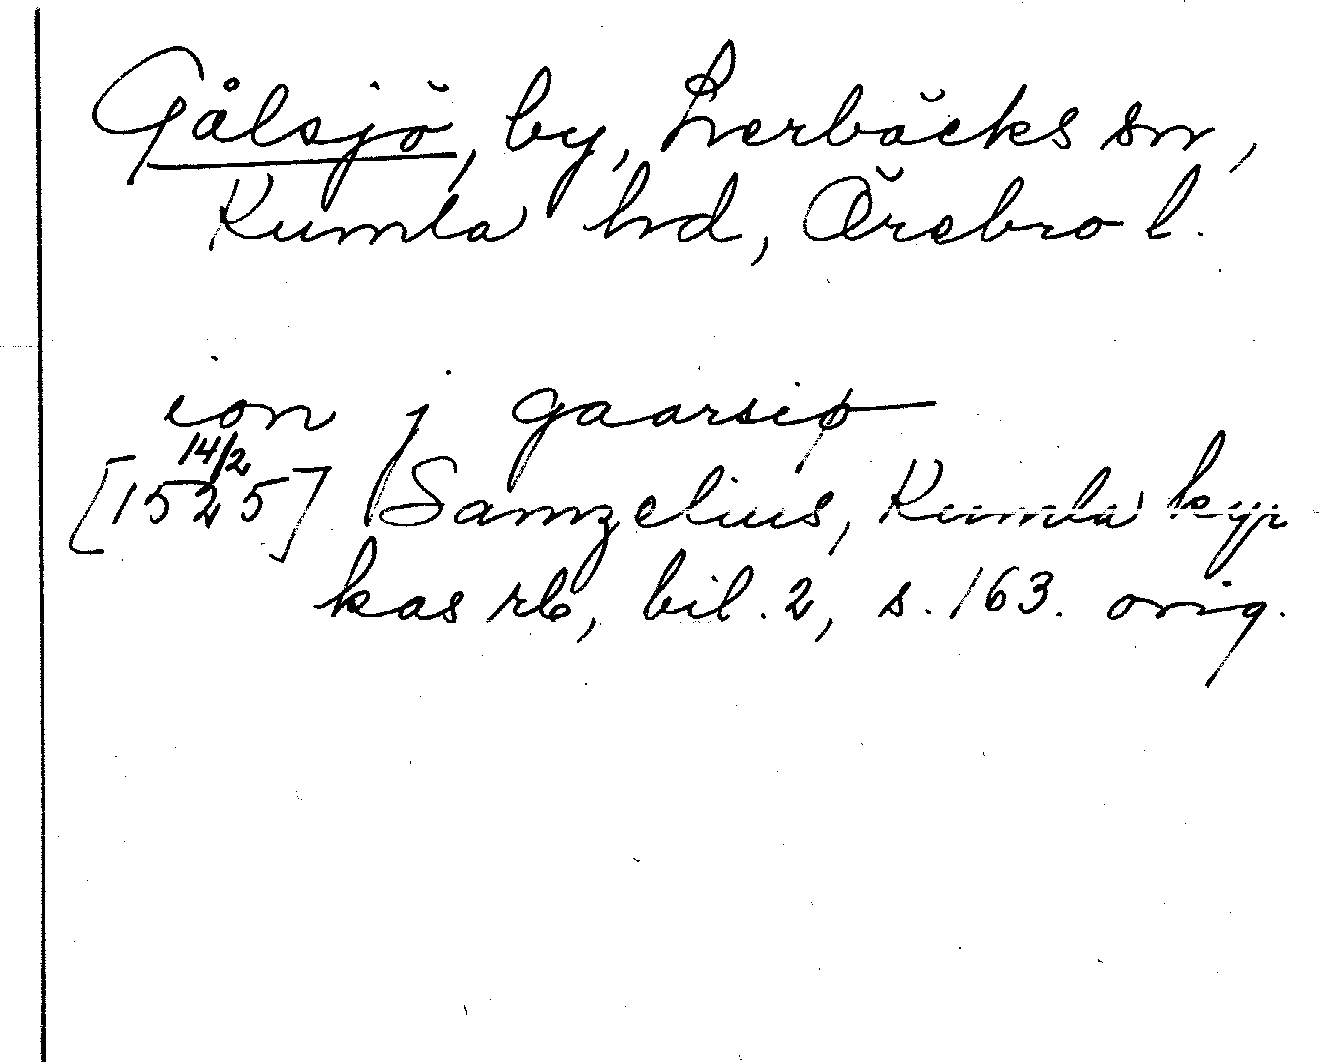 Gålsjö, by, Lerbäcks sn,
Kumla hd, Örebro l.
ion j gaarsiø
14/2
[1525] Samzelius, Kumla kyr
kas rb, bil. 2, s. 163. orig.